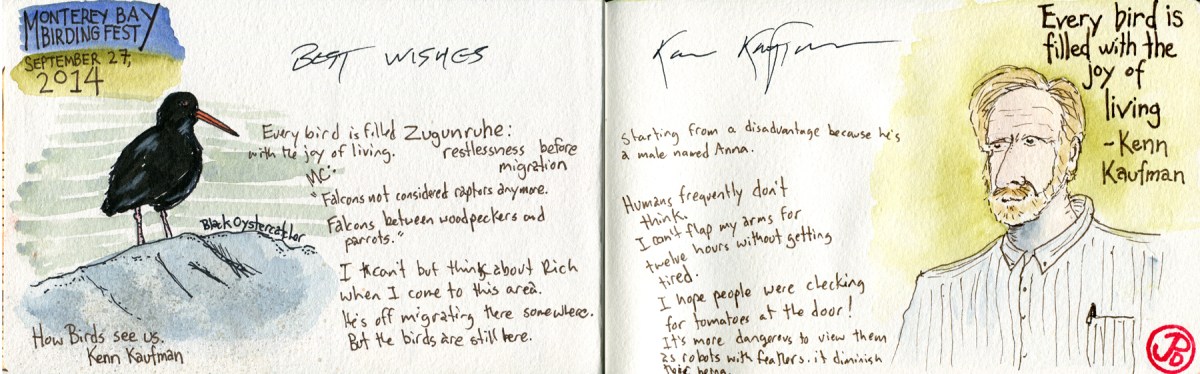 MONTEREY BAY
BIRDING FEST
SEPTEMBER 27,
2014
BEST WISHES
Every bird is filled
with the joy of living.
Zugunruhe:
restlessness before
migration
MC:
"Falcons not considered raptors anymore.
Falcons between woodpeckers and
parrots."
Black Oystercatcher
I can't but think about Rich
when I come to this area.
He's off migrating there somewhere.
But the birds are still here.
How Birds see us.
Kenn Kaufman
Kenn Kaufman
Starting from a disadvantage because he's
a male named Anna.
Humans frequently don't
think.
I can't flap my arms for
twelve hours without getting
tired.
I hope people were checking
for tomatoes at the door!
It's more dangerous to view them
as robots with feathers. it diminish
their being.
Every bird is
filled with the
joy of
living
-Kenn
Kaufman
JPD